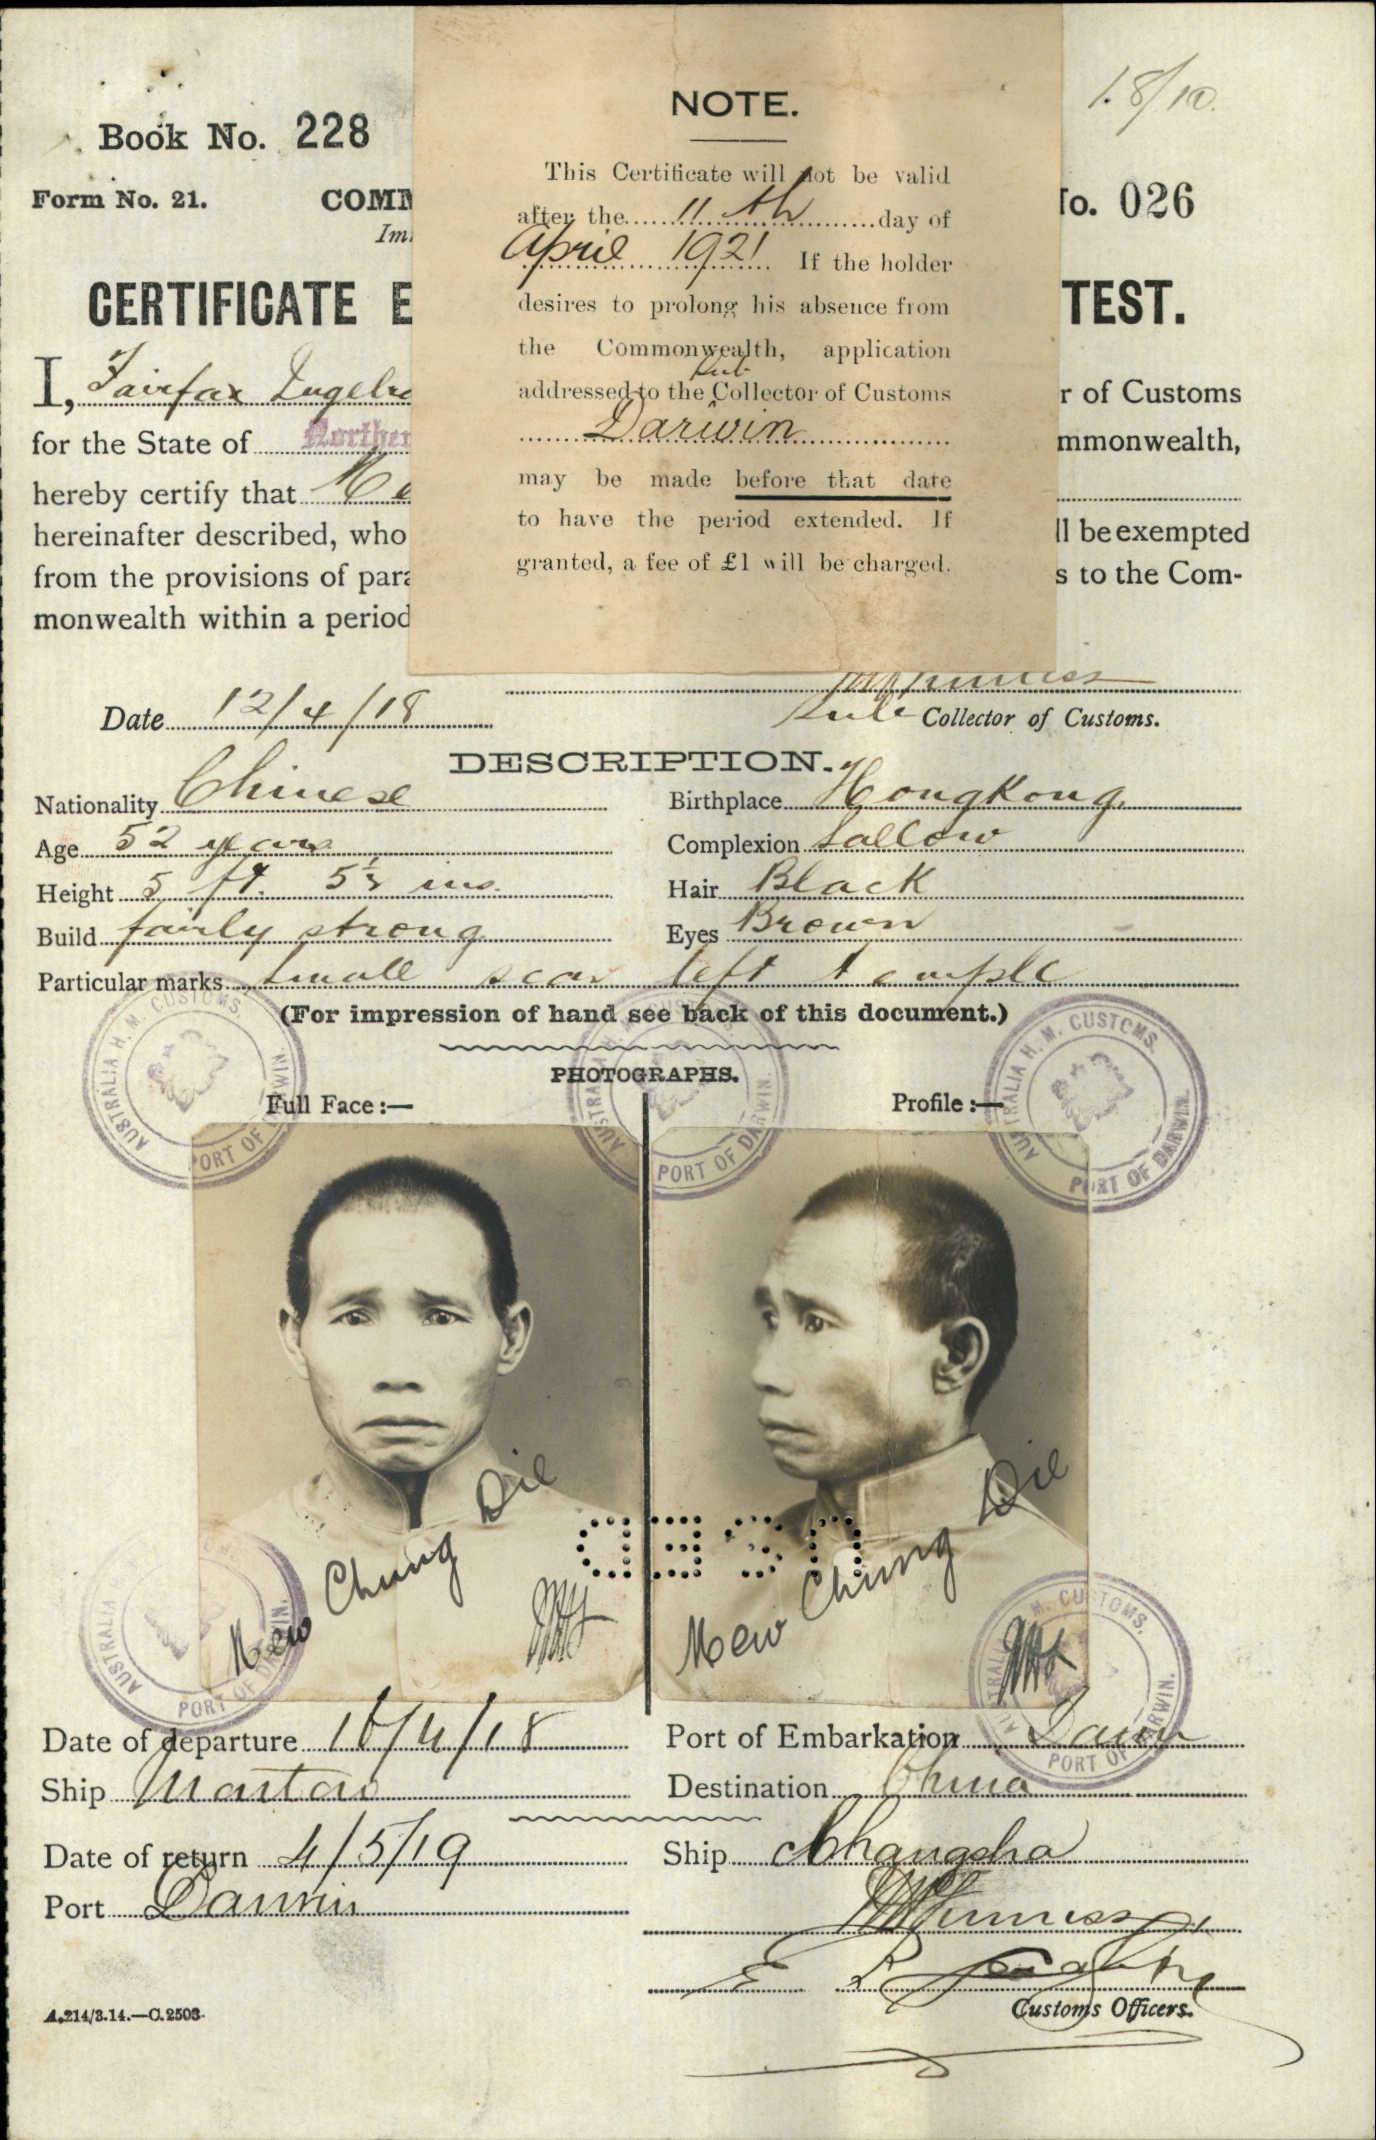 NOTE.
18/10.
Book No. 228
This Certificate will not be valid
Form No. 21.
COMM
after the 11th day of
No. 026
Im
April 1921 If the holder
CERTIFICATE E
desires to prolong his absence from
TEST.
the Commonwealth, application
I, Fairfax Ingelre
Sub
addressed to the Collector of Customs
r of Customs
for the State of Norther
Darwin
mmonwealth,
may be made before that date
hereby certify that Me
to have the period extended. If
hereinafter described, who
ll be exempted
granted, a fee of £1 will be charged.
from the provisions of para
s to the Com-
monwealth within a period
Date 12/4/18
Sub Collector of Customs.
DESCRIPTION.
Nationality Chinese
Birthplace HongKong.
Age 52 years
Complexion Sallow
Height 5 ft. 5½ ins.
Hair Black
Build fairly strong
Eyes Brown
Particular marks Small scar left temple
(For impression of hand see back of this document.)
PHOTOGRAPHS.
Full Face:—
Profile:—
AUSTRALIA H. M. CUSTOMS. PORT OF DARWIN
AUSTRALIA H. M. CUSTOMS. PORT OF DARWIN.
AUSTRALIA H. M. CUSTOMS. PORT OF DARWIN.
Mew Chung Die
Mew Chung Die
USED
AUSTRALIA PORT OF DARWIN.
AUSTRALIA H. M. CUSTOMS. PORT OF DARWIN.
Date of departure 16/4/18
Port of Embarkation Darwin
Ship Mantaro
Destination China
Date of return 4/5/19
Ship Changsha
Port Darwin
Customs Officers.
A.214/3.14.—C.2503.